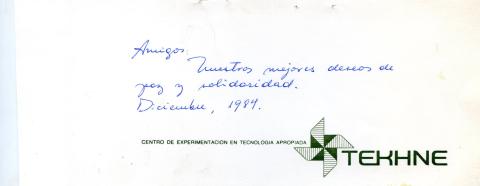 Amigos:
Nuestros mejores deseos de
paz y solidaridad.
Diciembre, 1984.
CENTRO DE EXPERIMENTACION EN TECNOLOGIA APROPIADA
TEKHNE